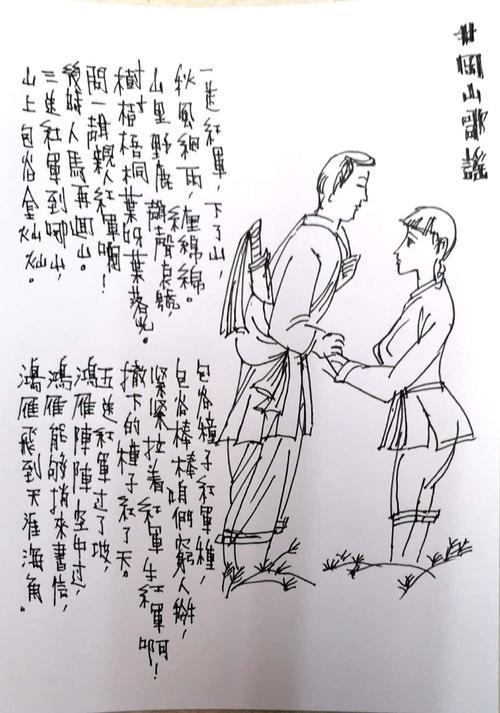 井岡山
一送紅軍，下了山，
秋風細雨，纏綿綿。
山里野鹿聲聲哀號，
樹樹梧桐葉呀葉落光。
問一聲親人紅軍啊！
幾時人馬再回山。
三送紅軍到哪山，
山上包谷金灿灿。
包谷種子紅軍種，
包谷棒棒咱們窮人掰，
緊緊拉着紅軍手紅軍啊！
撒下的種子紅了天。
五送紅軍过了坡，
鴻雁陣陣空中过，
鴻雁能夠捎來書信，
鴻雁飛到天涯海角。